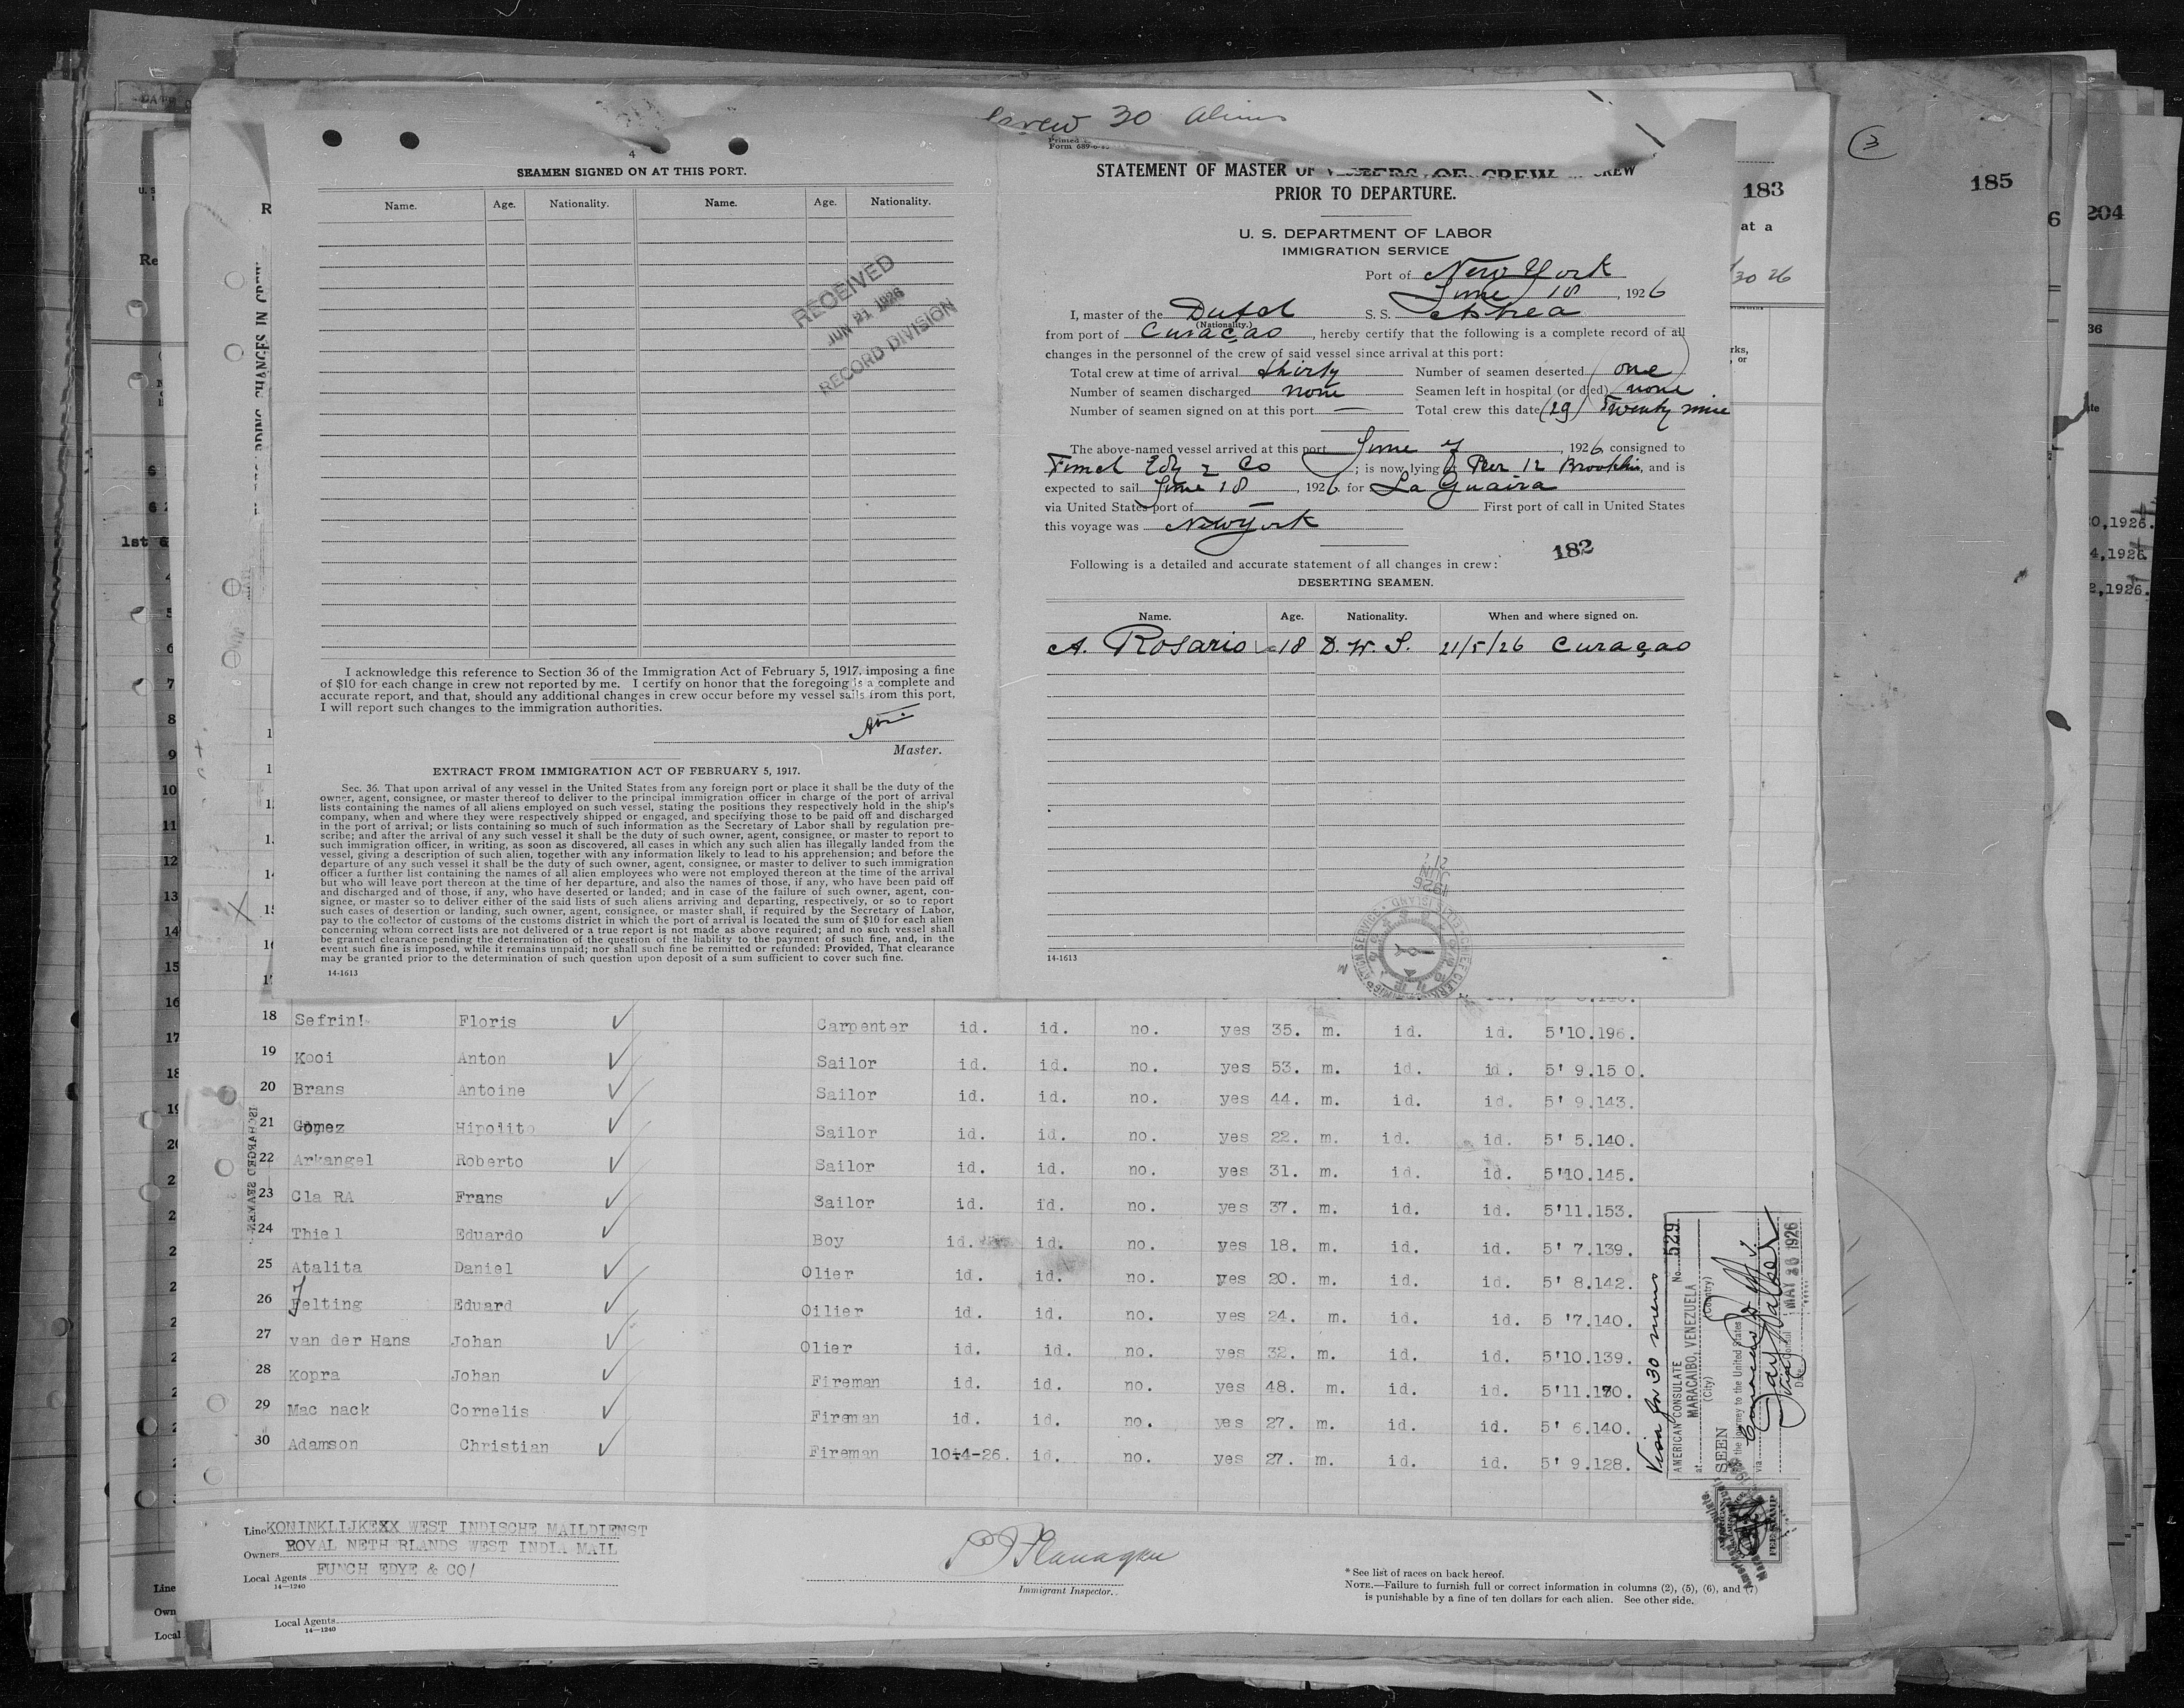 Crew 30 Aliens
4
SEAMEN SIGNED ON AT THIS PORT.
Name. Age. Nationality. Name. Age. Nationality.
RECEIVED
JUN 21 1926
RECORD DIVISION
I acknowledge this reference to Section 36 of the Immigration Act of February 5, 1917, imposing a fine
of $10 for each change in crew not reported by me. I certify on honor that the foregoing is a complete and
accurate report, and that, should any additional changes in crew occur before my vessel sails from this port,
I will report such changes to the immigration authorities.
Master.
EXTRACT FROM IMMIGRATION ACT OF FEBRUARY 5, 1917.
Sec. 36. That upon arrival of any vessel in the United States from any foreign port or place it shall be the duty of the
owner, agent, consignee, or master thereof to deliver to the principal immigration officer in charge of the port of arrival
lists containing the names of all aliens employed on such vessel, stating the positions they respectively hold in the ship's
company, when and where they were respectively shipped or engaged, and specifying those to be paid off and discharged
in the port of arrival; or lists containing so much of such information as the Secretary of Labor shall by regulation pre-
scribe; and after the arrival of any such vessel it shall be the duty of such owner, agent, consignee, or master to report to
such immigration officer, in writing, as soon as discovered, all cases in which any such alien has illegally landed from the
vessel, giving a description of such alien, together with any information likely to lead to his apprehension; and before the
departure of any such vessel it shall be the duty of such owner, agent, consignee, or master to deliver to such immigration
officer a further list containing the names of all alien employees who were not employed thereon at the time of the arrival
but who will leave port thereon at the time of her departure, and also the names of those, if any, who have been paid off
and discharged and of those, if any, who have deserted or landed; and in case of the failure of such owner, agent, con-
signee, or master so to deliver either of the said lists of such aliens arriving and departing, respectively, or so to report
such cases of desertion or landing, such owner, agent, consignee, or master shall, if required by the Secretary of Labor,
pay to the collector of customs of the customs district in which the port of arrival is located the sum of $10 for each alien
concerning whom correct lists are not delivered or a true report is not made as above required; and no such vessel shall
be granted clearance pending the determination of the question of the liability to the payment of such fine, and, in the
event such fine is imposed, while it remains unpaid; nor shall such fine be remitted or refunded: Provided, That clearance
may be granted prior to the determination of such question upon deposit of a sum sufficient to cover such fine.
14-1613
Form 689
STATEMENT OF MASTER OF CREW
PRIOR TO DEPARTURE.
U. S. DEPARTMENT OF LABOR
IMMIGRATION SERVICE
Port of New York
June 18, 1926
I, master of the Dutch S. S. Astrea
(Nationality.)
from port of Curaçao, hereby certify that the following is a complete record of all
changes in the personnel of the crew of said vessel since arrival at this port:
Total crew at time of arrival thirty Number of seamen deserted one
Number of seamen discharged none Seamen left in hospital (or died) none
Number of seamen signed on at this port — Total crew this date (29) Twenty nine
The above-named vessel arrived at this port June 7, 1926, consigned to
Funch Edy & Co; is now lying at Pier 12 Brooklin, and is
expected to sail June 18, 1926 for La Guaira
via United States port of — First port of call in United States
this voyage was New York
182
Following is a detailed and accurate statement of all changes in crew:
DESERTING SEAMEN.
Name. Age. Nationality. When and where signed on.
A. Rosario 18 D. W. I. 21/5/26 Curaçao
14-1613
JUN 21 1926
183
at a
30 26
3
185
6
204
18 Sefrin! Floris Carpenter id. id. no. yes 35. m. id. id. 5'10.196.
19 Kooi Anton Sailor id. id. no. yes 53. m. id. id. 5' 9.15 0.
20 Brans Antoine Sailor id. id. no. yes 44. m. id. id. 5' 9.143.
21 Gomez Hipolito Sailor id. id. no. yes 22. m. id. id. 5' 5.140.
22 Arkangel Roberto Sailor id. id. no. yes 31. m. id. id. 5'10.145.
23 Cla RA Frans Sailor id. id. no. yes 37. m. id. id. 5'11.153.
24 Thiel Eduardo Boy id. id. no. yes 18. m. id. id. 5' 7.139.
25 Atalita Daniel Olier id. id. no. yes 20. m. id. id. 5' 8.142.
26 Jelting Eduard Oilier id. id. no. yes 24. m. id. id. 5 '7.140.
27 van der Hans Johan Olier id. id. no. yes 32. m. id. id. 5'10.139.
28 Kopra Johan Fireman id. id. no. yes 48. m. id. id. 5'11.170.
29 Mac nack Cornelis Fireman id. id. no. yes 27. m. id. id. 5' 6.140.
30 Adamson Christian Fireman 10-4-26. id. no. yes 27. m. id. id. 5' 9.128.
Visa for 30 mens
AMERICAN CONSULATE No. 529
at MARACAIBO, VENEZUELA
(City) (Country)
SEEN
the journey to the United States
via
Date MAY 26 1926
Line KONINKLIJKEXX WEST INDISCHE MAILDIENST
Owners ROYAL NETH RLANDS WEST INDIA MAIL
Local Agents FUNCH EDYE & CO/
14—1240
P J Flanagan
Immigrant Inspector.
* See list of races on back hereof.
NOTE.—Failure to furnish full or correct information in columns (2), (5), (6), and (7)
is punishable by a fine of ten dollars for each alien. See other side.
Local Agents
14—1240